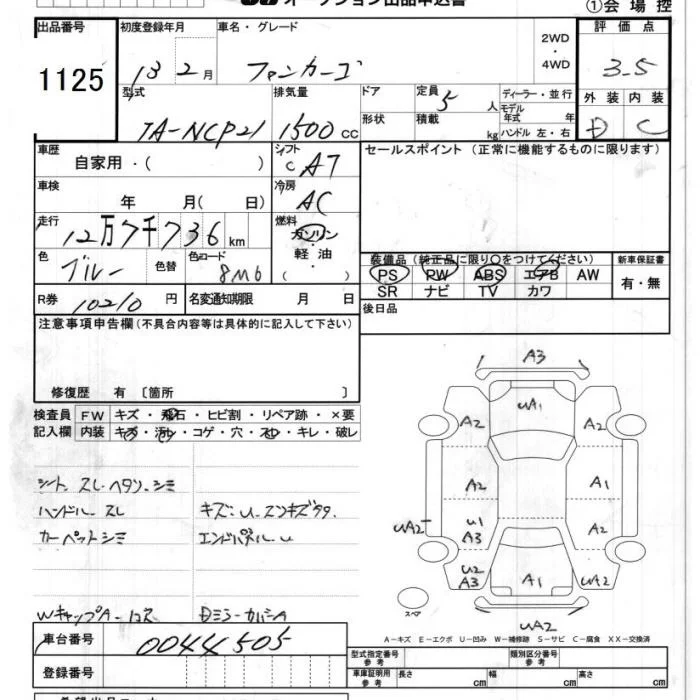 オークション出品申込書
①会場控
出品番号 初度登録年月 車名・グレード 評価点
1125 13 2月 ファンカーゴ 2WD・4WD 3.5
型式 排気量 ドア 定員 5人 ディーラー・並行 外装 内装
TA-NCP21 1500cc 形状 積載 kg モデル年式 年 ハンドル 左・右 D C
車歴 自家用・( ) シフト C AT セールスポイント(正常に機能するものに限ります)
車検 年 月(日) 冷房 AC
走行 12万7千736km 燃料 ガソリン 軽油 ( )
色 ブルー 色替 色コード 8M6
装備品(純正品に限り○をつけてください) 新車保証書
PS PW ABS エアB AW 有・無
SR ナビ TV カワ
R券 10210円 名変通知期限 月 日
後日品
注意事項申告欄(不具合内容等は具体的に記入して下さい)
修復歴 有 〔箇所 〕
検査員 FW キズ・飛石・ヒビ割・リペア跡・×要
記入欄 内装 キズ・汚れ・コゲ・穴・スレ・キレ・破レ
シート スレ・ヘタリ・シミ
ハンドル スレ キズ・U・エンキズタタ
カーペットシミ エンドパネルU
WキャップA-コス
A3
UA1
A2 A2
A2 A1
UA2 U1 A3 A2
U2 A3 A1 UA2
スペア
UA2
A-キズ E-エクボ U-凹み W-補修跡 S-サビ C-腐食 XX-交換済
車台番号 0044505
型式指定番号 参考 類別区分番号 参考
登録番号 車庫証明用 参考 長さ cm 幅 cm 高さ cm